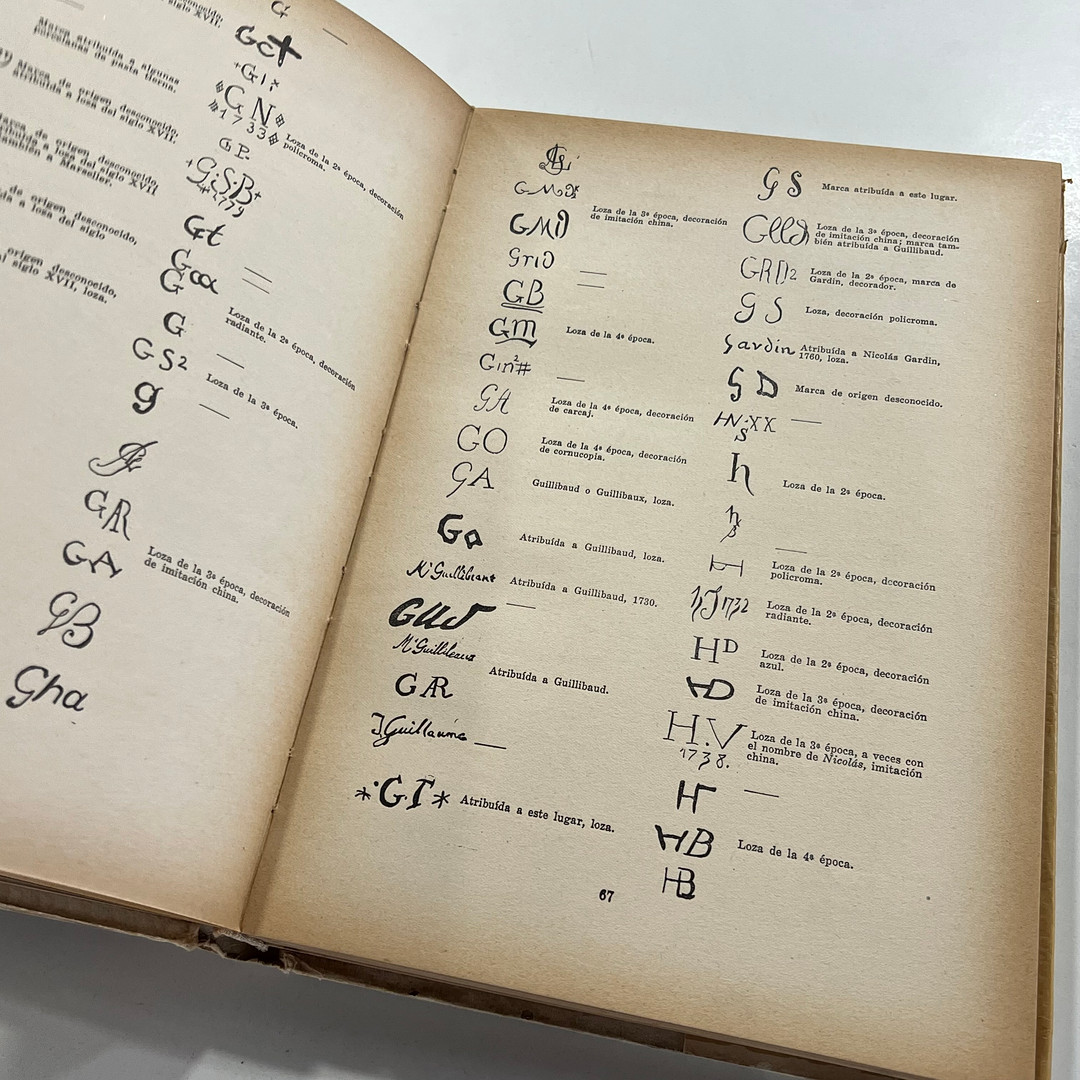 desconocido,
siglo XVII.
Marca atribuída a algunas
porcelanas de pasta tierna.
Marca de origen desconocido,
atribuída a loza del siglo XVII.
Marca de origen desconocido,
atribuída a loza del siglo XVII
también a Marseller.
de origen desconocido,
a loza del siglo
origen desconocido,
siglo XVII, loza.
G
Gct
+G I ×
G N
1733
Loza de la 2ª época, decoración
polícroma.
G P.
+G.S.B+
1779
Gt
Gca
G
G
Loza de la 2ª época, decoración
radiante.
GS2
Loza de la 3ª época.
g
GR
GA
Loza de la 3ª época, decoración
de imitación china.
GB
Gha
GMD
Loza de la 3ª época, decoración
de imitación china.
GB
Gm
Loza de la 4ª época.
GA
Loza de la 4ª época, decoración
de carcaj.
GO
Loza de la 4ª época, decoración
de cornucopia.
GA
Guillibaud o Guillibaux, loza.
Go
Atribuída a Guillibaud, loza.
Mr Guillibeaut
Atribuída a Guillibaud, 1730.
Mr Guillibeaux
Atribuída a Guillibaud.
GAR
J. Guillaume
*·G.T*
Atribuída a este lugar, loza.
G S
Marca atribuída a este lugar.
Loza de la 3ª época, decoración
de imitación china; marca tam-
bién atribuida a Guillibaud.
GRD2
Loza de la 2ª época, marca de
Gardin, decorador.
G S
Loza, decoración polícroma.
Gardin
Atribuída a Nicolás Gardin,
1760, loza.
G D
Marca de origen desconocido.
HN·XX
S
h
Loza de la 2ª época.
H
Loza de la 2ª época, decoración
polícroma.
hJ1732
Loza de la 2ª época, decoración
radiante.
HD
Loza de la 2ª época, decoración
azul.
HD
Loza de la 3ª época, decoración
de imitación china.
H.V
1738.
Loza de la 3ª época, a veces con
el nombre de Nicolás, imitación
china.
HB
Loza de la 4ª época.
HB
67